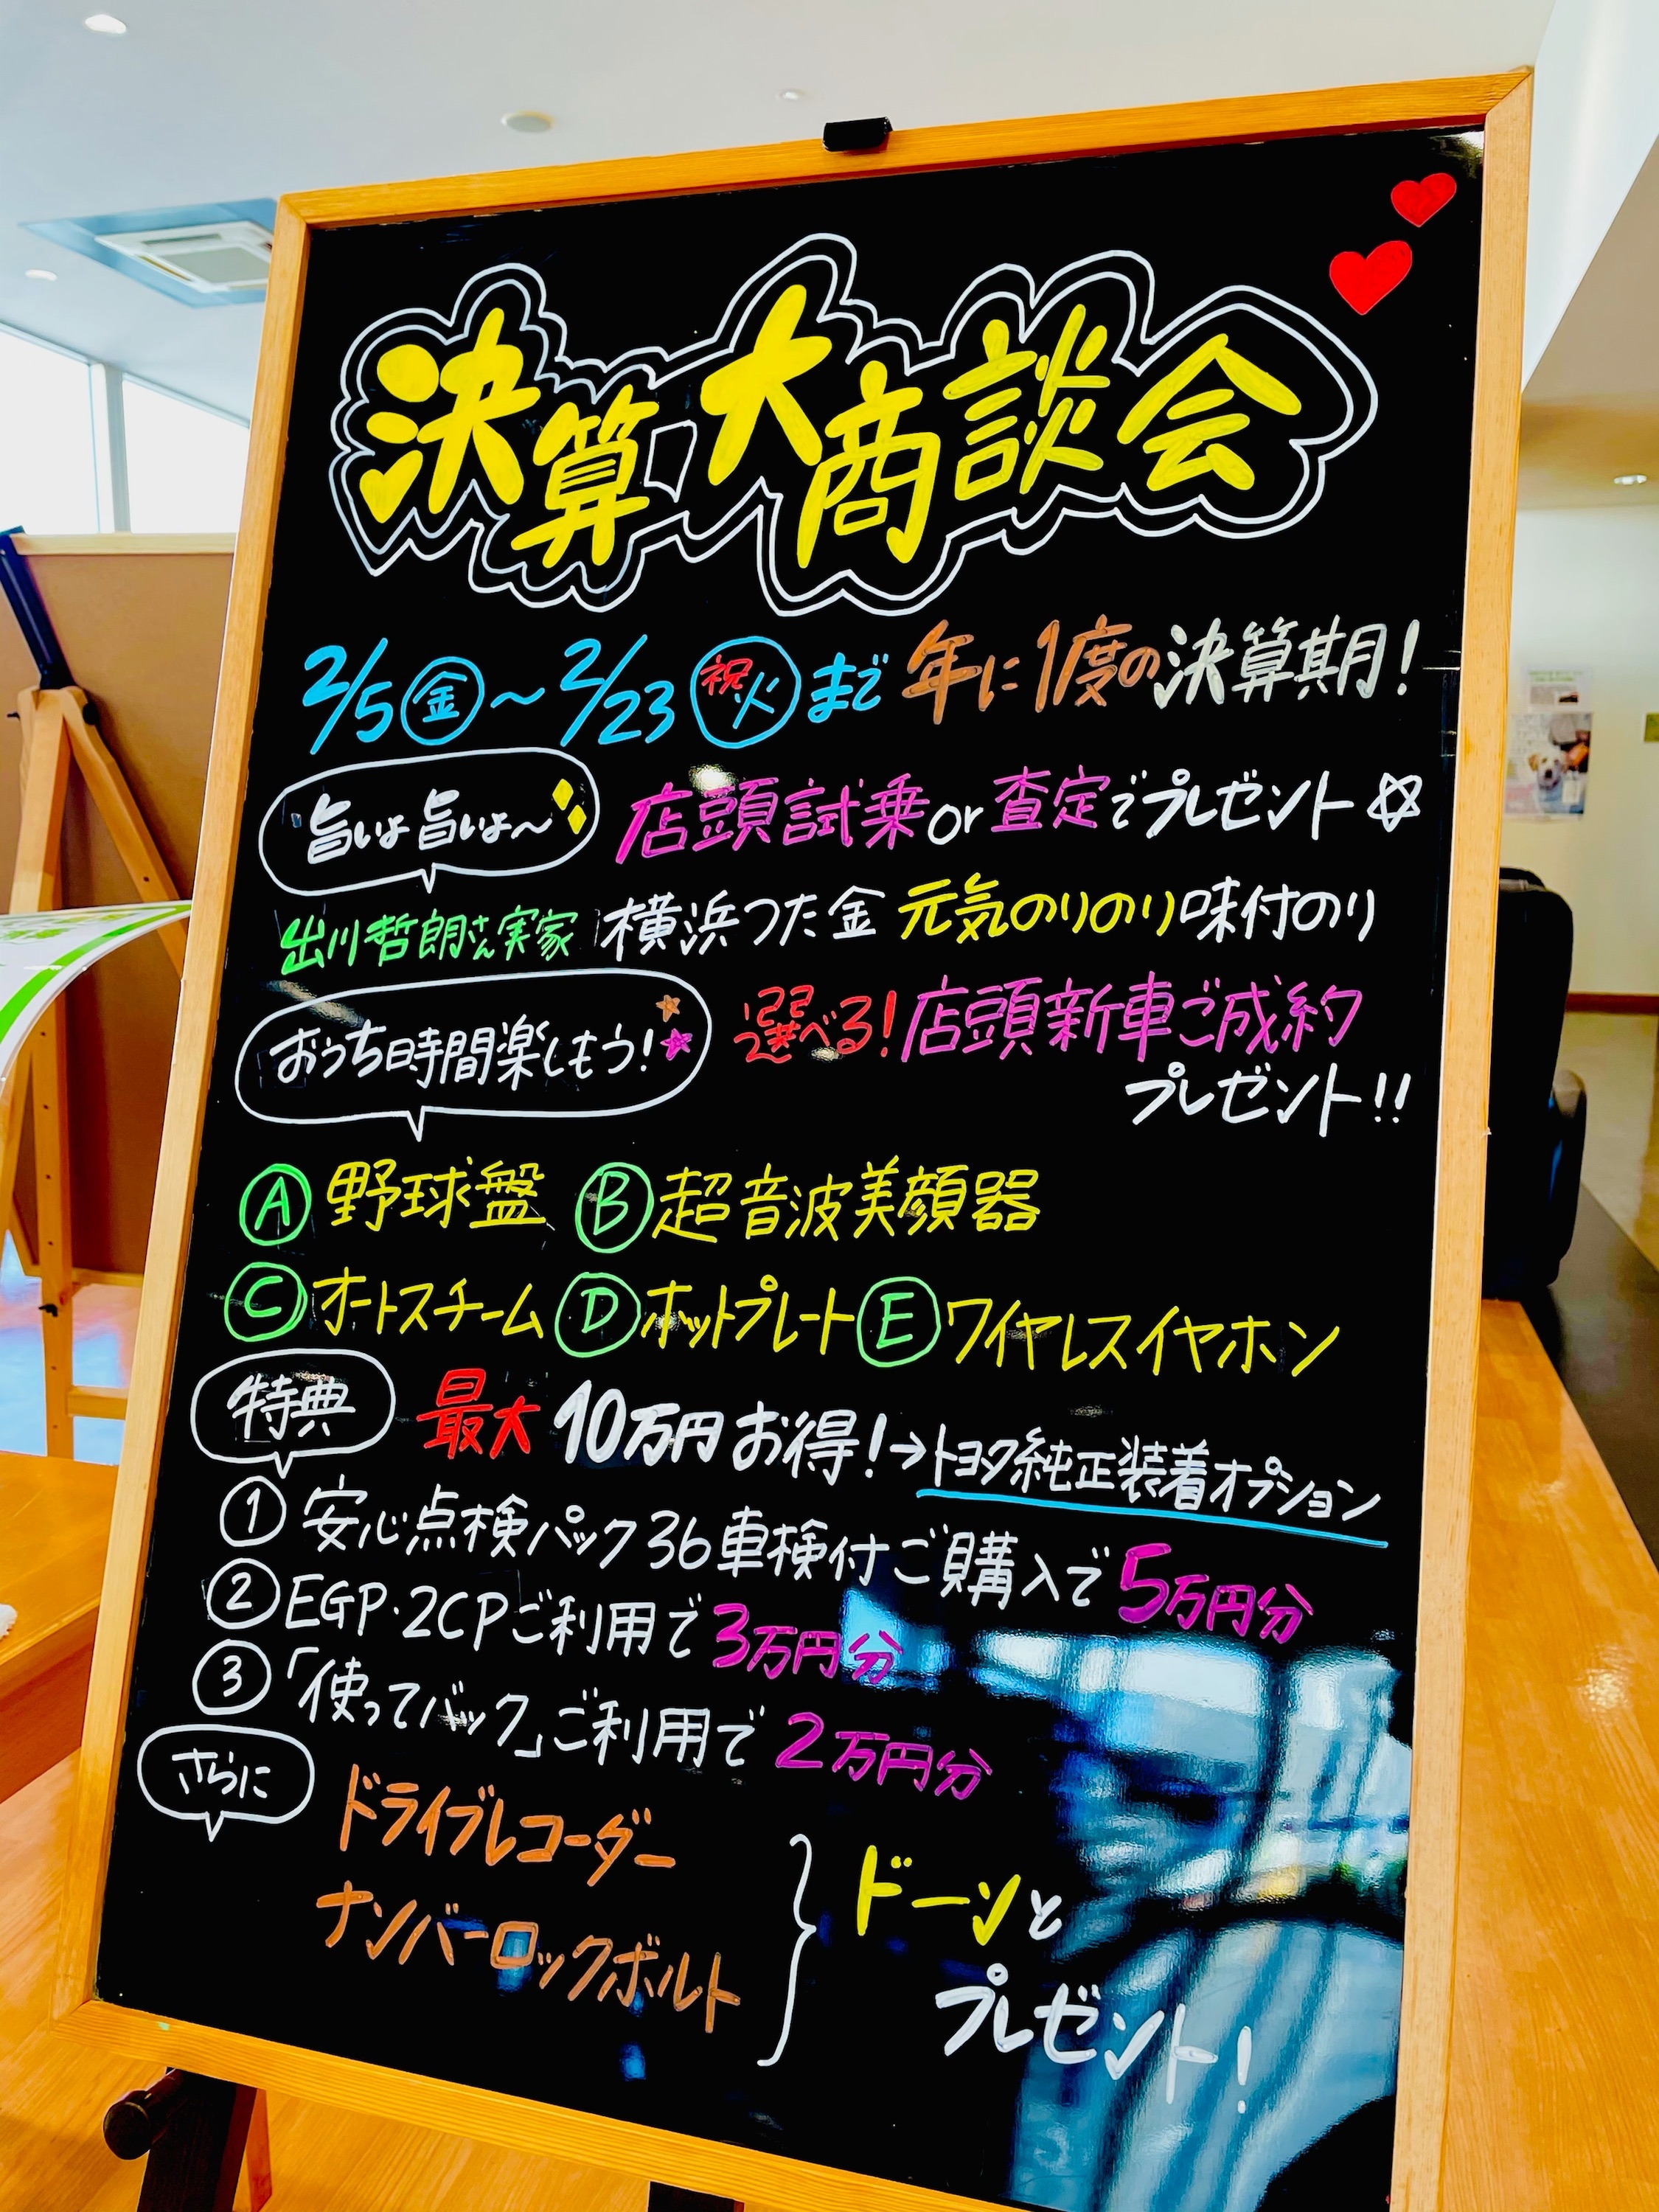 決算大商談会
2/5㊎～2/23(祝火)まで 年に1度の決算期!
旨いよ旨いよ～ 店頭試乗or査定でプレゼント☆
出川哲朗さん実家 横浜つた金 元気のりのり味付のり
おうち時間楽しもう! 選べる!店頭新車ご成約
プレゼント!!
Ⓐ野球盤 Ⓑ超音波美顔器
Ⓒオートスチーム Ⓓホットプレート Ⓔワイヤレスイヤホン
特典 最大10万円お得!→トヨタ純正装着オプション
①安心点検パック36車検付ご購入で5万円分
②EGP・2CPご利用で3万円分
③「使ってバック」ご利用で2万円分
さらに ドライブレコーダー
ナンバーロックボルト
ドーンと
プレゼント!